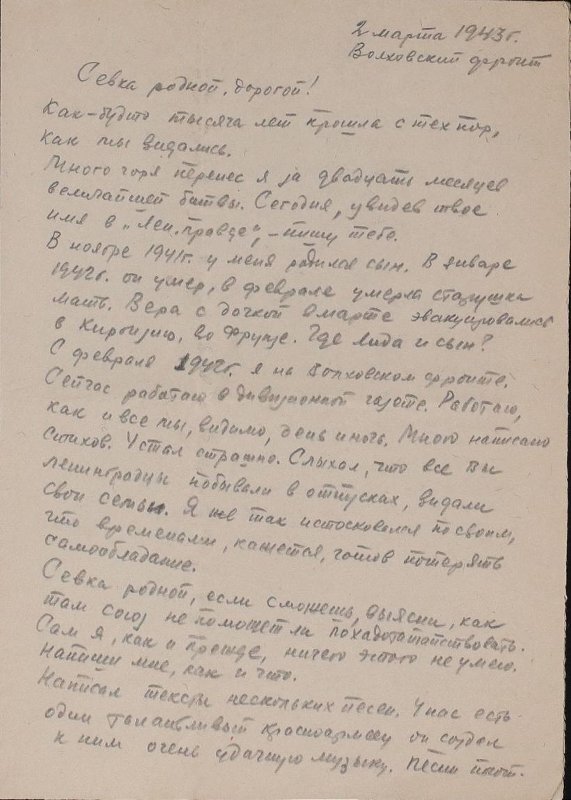 2 марта 1943 г.
Волховский фронт
Севка родной, дорогой!
Как-будто тысяча лет прошла с тех пор,
как мы видались.
Много горя перенес я за двадцать месяцев
величайшей битвы. Сегодня, увидев твое
имя в „Лен. правде", – пишу тебе.
В ноябре 1941 г. у меня родился сын. В январе
1942 г. он умер, в феврале умерла старушка
мать. Вера с дочкой в марте эвакуировались
в Киргизию, во Фрунзе. Где Лида и сын?
С февраля 1942 г. я на Волховском фронте.
Сейчас работаю в дивизионной газете. Работаю,
как и все мы, видимо, день и ночь. Много написано
стихов. Устал страшно. Слыхал, что все вы
ленинградцы побывали в отпусках, видали
свои семьи. Я же так истосковался по своим,
что временами, кажется, готов потерять
самообладание.
Севка родной, если сможешь, выясни, как
там союз не поможет ли походатайствовать.
Сам я, как и прежде, ничего этого не умею.
Напиши мне, как и что.
Написал тексты нескольких песен. У нас есть
один талантливый красноармеец он создал
к ним очень удачную музыку. Песни поют.